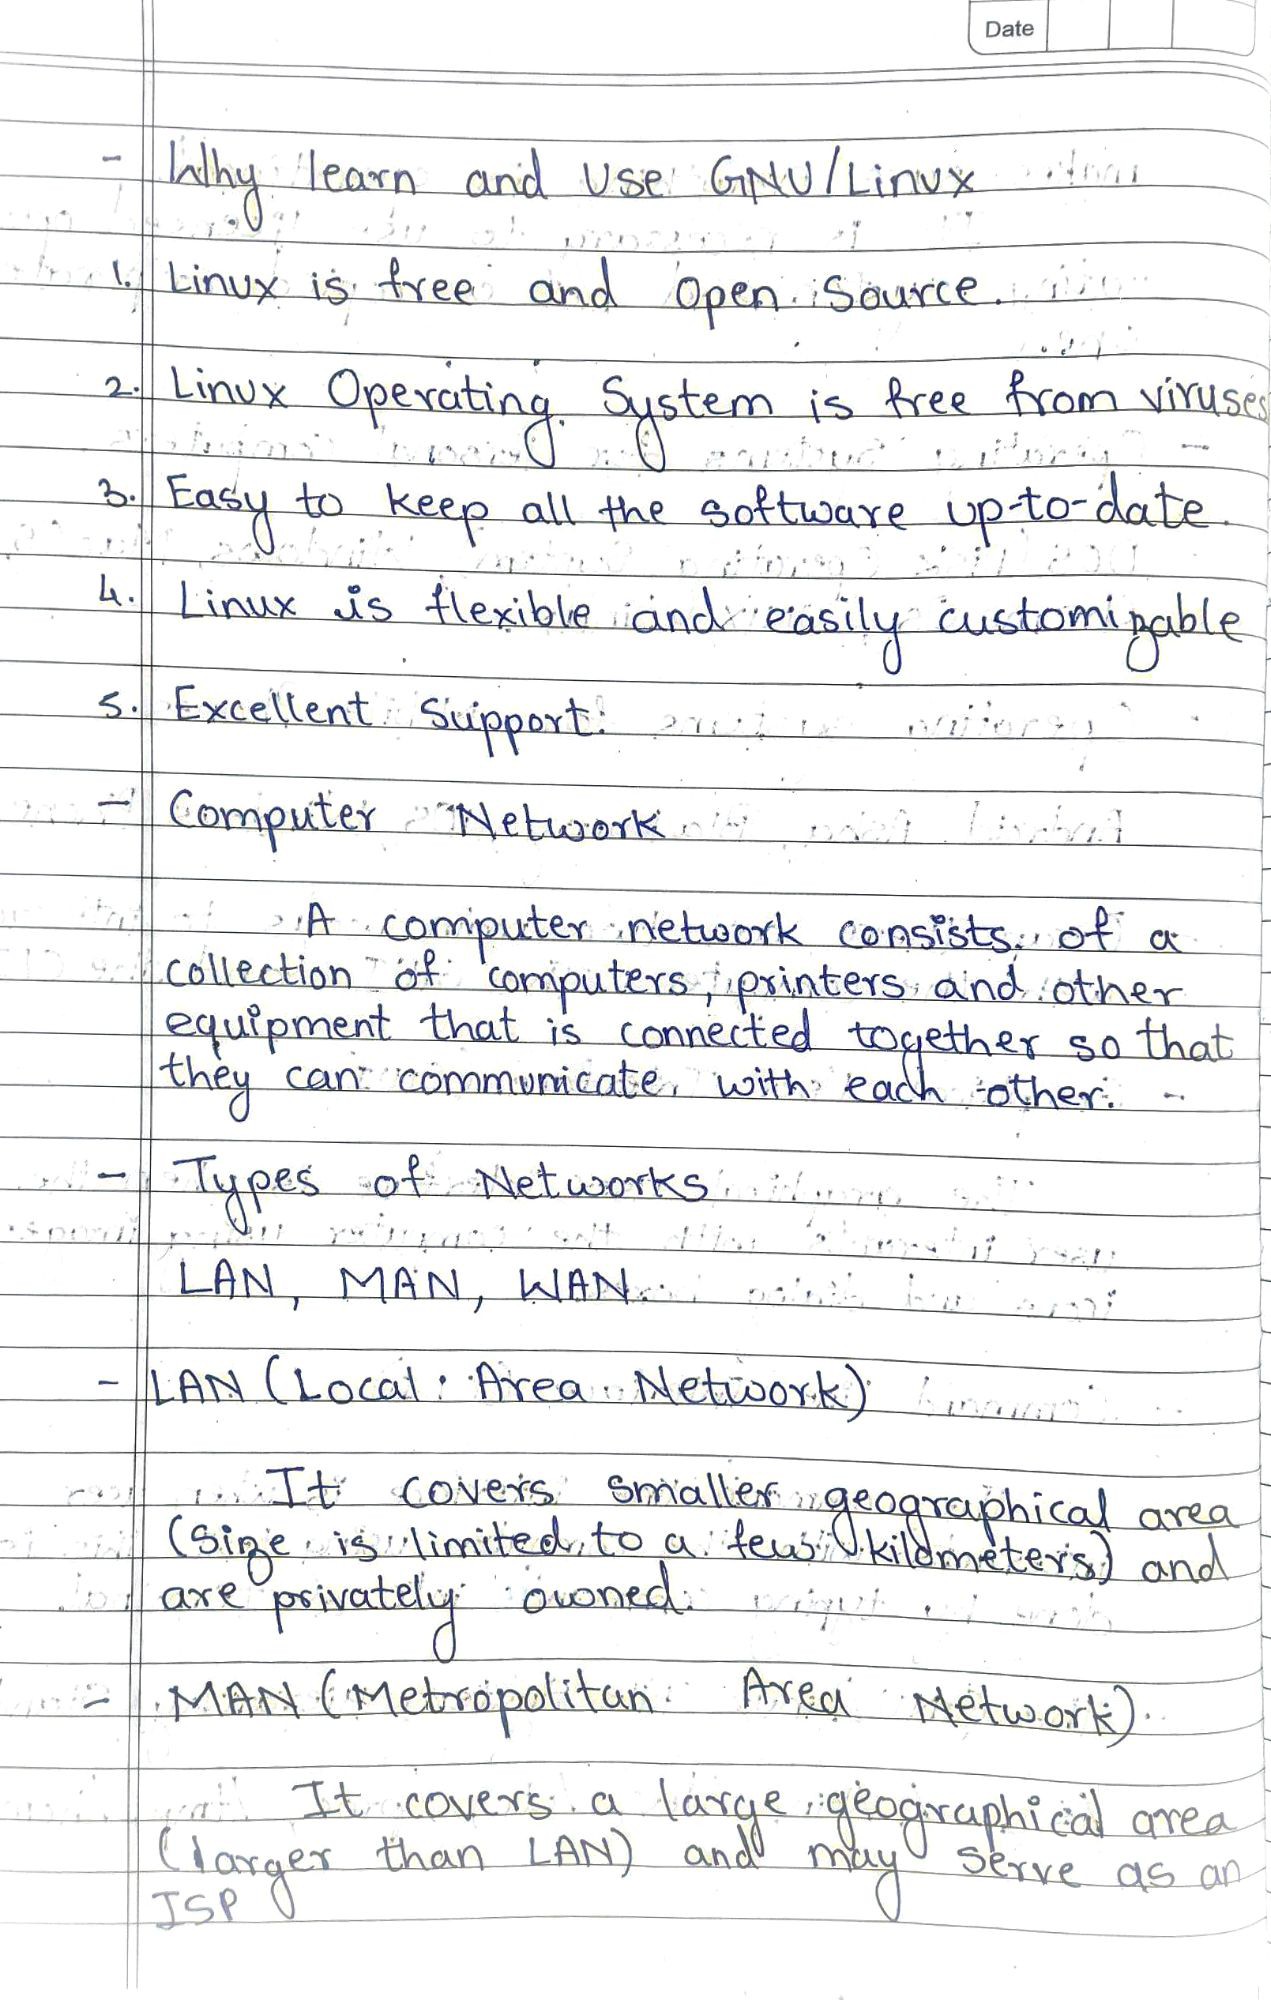 Date
- Why learn and use GNU/Linux
1. Linux is free and open source.
2. Linux Operating System is free from viruses
3. Easy to keep all the software up-to-date.
4. Linux is flexible and easily customizable
5. Excellent Support.
- Computer Network
A computer network consists of a
collection of computers, printers and other
equipment that is connected together so that
they can communicate with each other.
- Types of Networks
LAN, MAN, WAN.
- LAN (Local Area Network)
It covers smaller geographical area
(Size is limited to a few kilometers) and
are privately owned.
- MAN (Metropolitan Area Network)
It covers a large geographical area
(larger than LAN) and may serve as an
ISP